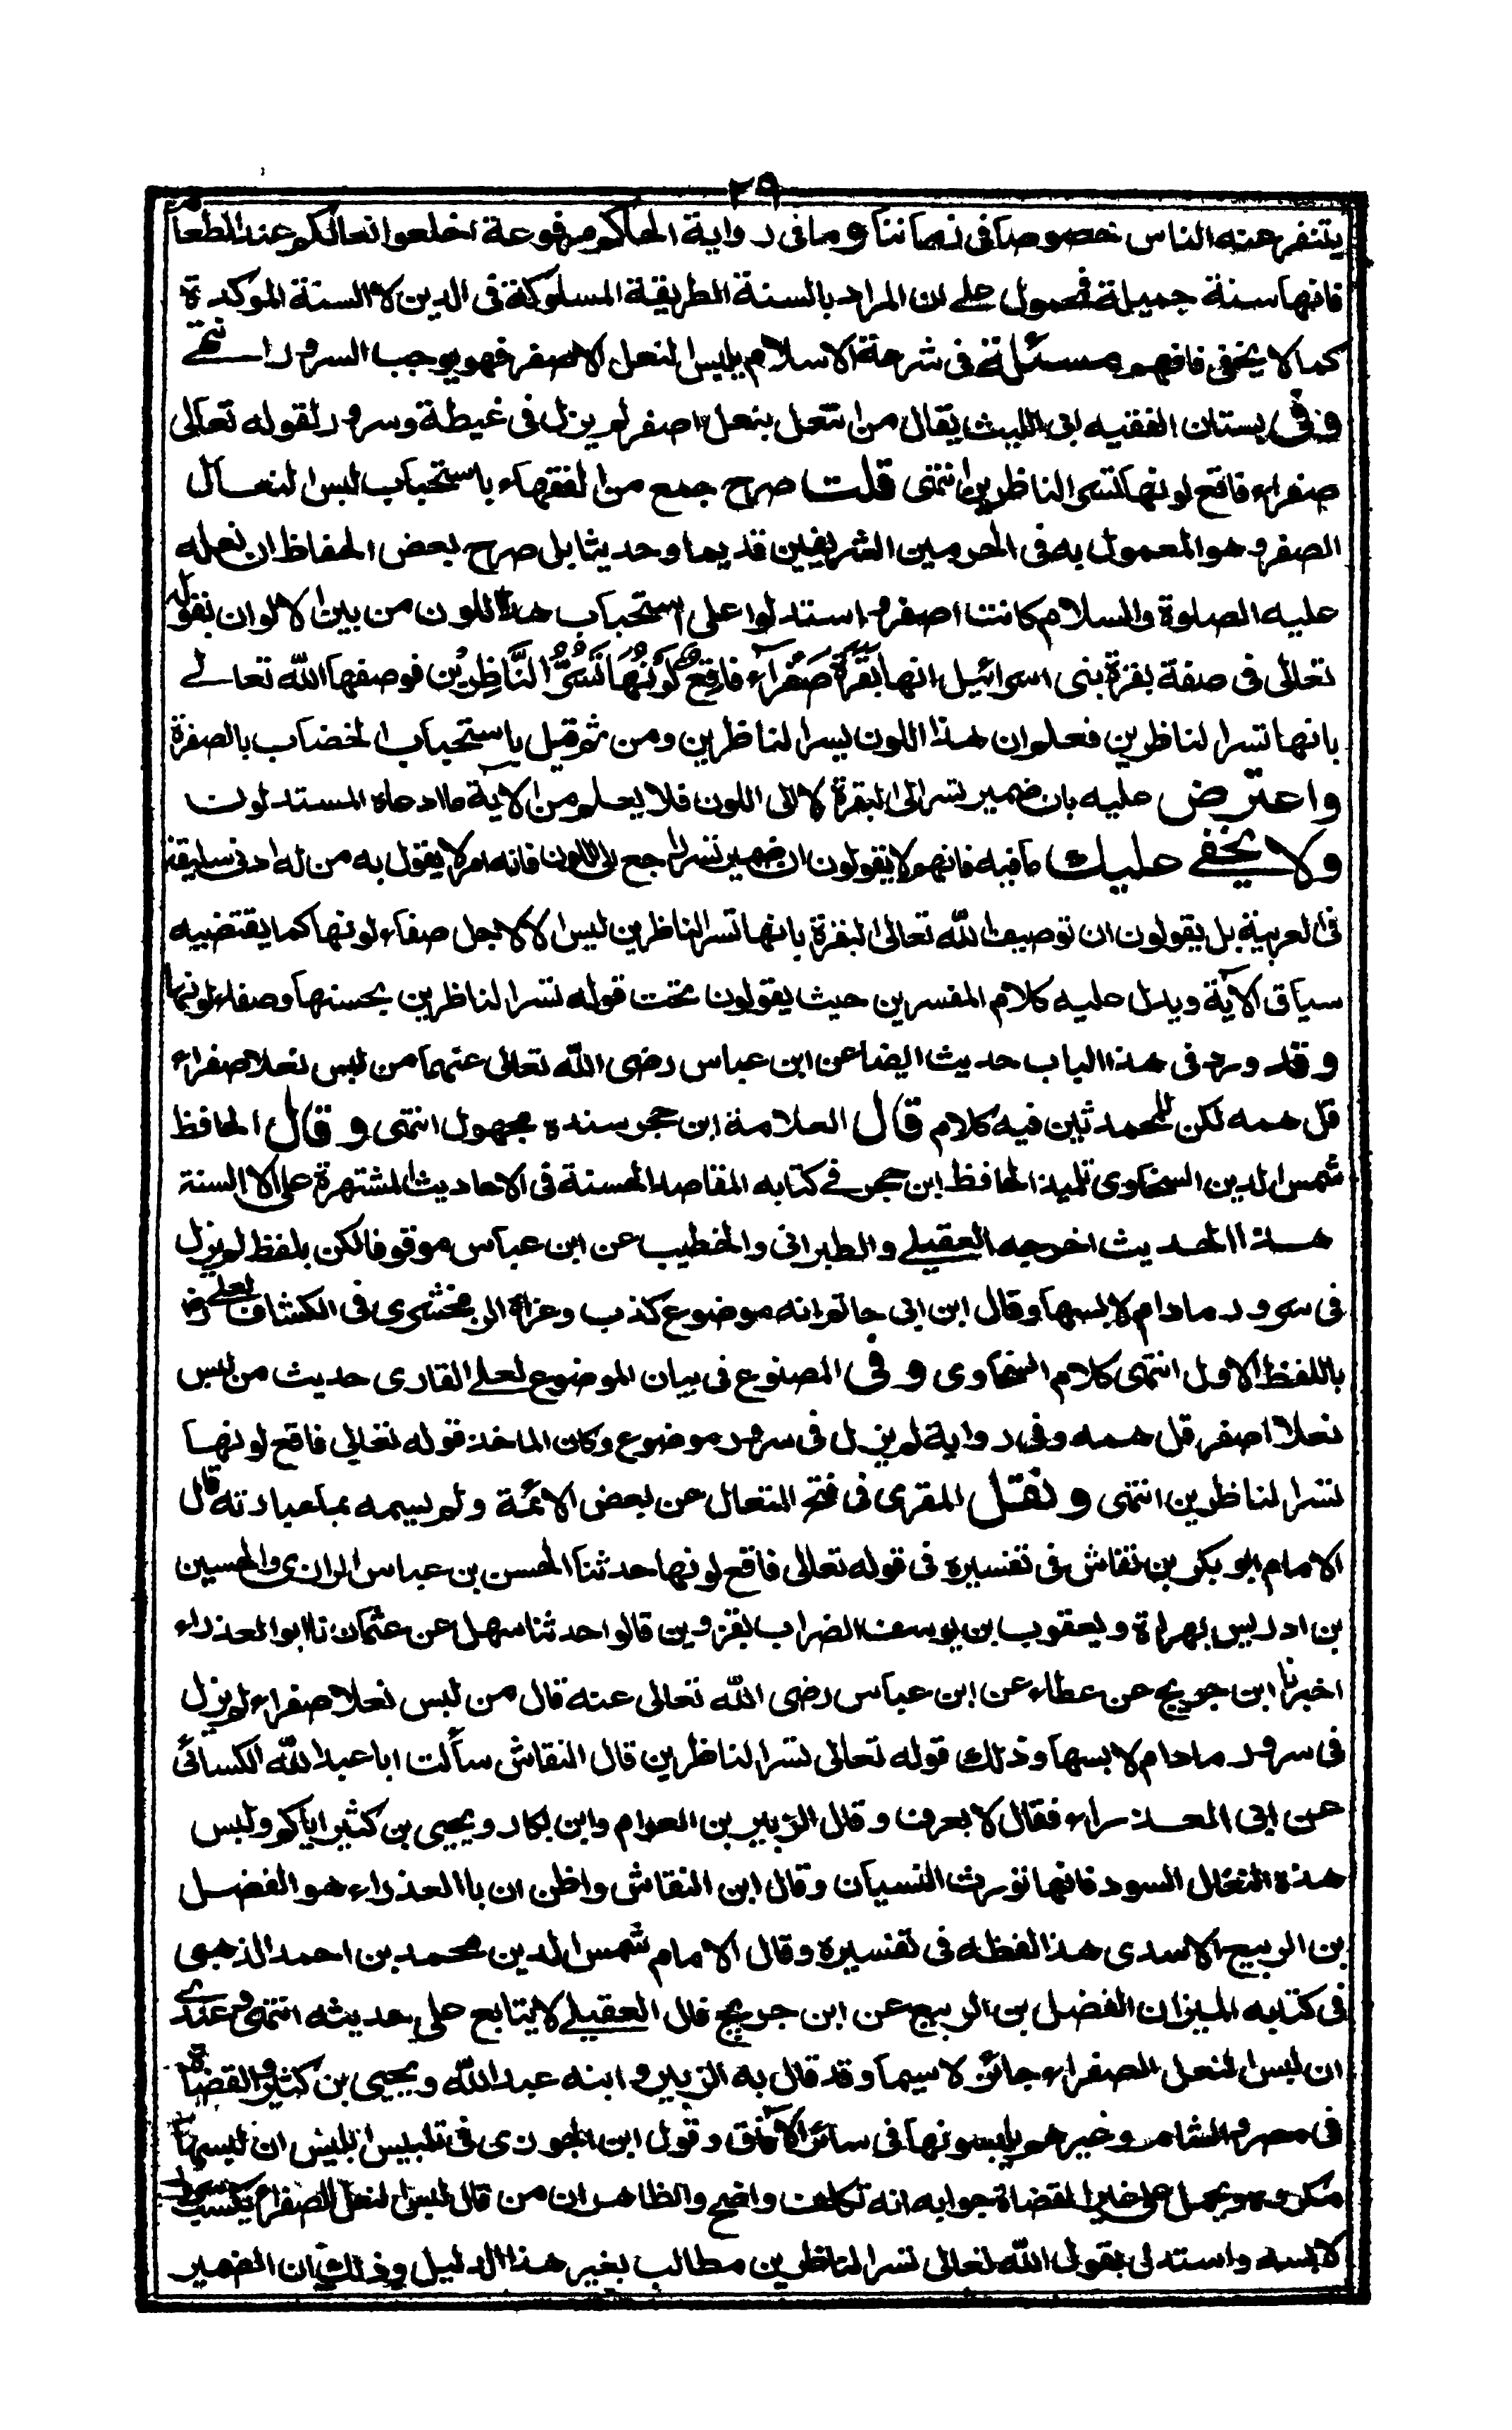 ٢٩
يتنفر عنه الناس خصوصا فى زماننا وما فى رواية الحاكم مرفوعة اخلعوا نعالكم عند الطعام
فانها سنة جميلة فمحمول على ان المراد بالسنة الطريقة المسلوكة فى الدين لا السنة الموكدة
كما لا يخفى فافهم مسئلة فى شرعة الاسلام يلبس النعل الاصفر فهو يوجب السرور انتهى
وفى بستان الفقيه ابى الليث يقال من انتعل بنعل اصفر لم يزل فى غبطة وسرور لقوله تعالى
صفراء فاقع لونها تسر الناظرين انتهى قلت صرح جمع من الفقهاء باستحباب لبس النعال
الصفر وهو المعمول به فى الحرمين الشريفين قديما وحديثا بل صرح بعض الحفاظ ان نعله
عليه الصلوة والسلام كانت اصفر واستدلوا على استحباب هذا اللون من بين الالوان بقوله
تعالى فى صفة بقرة بنى اسرائيل انها بَقَرَةٌ صَفْرَآءُ فَاقِعٌ لَوْنُهَا تَسُرُّ النَّاظِرِيْنَ فوصفها الله تعالى
بانها تسر الناظرين فعلم ان هذا اللون يسر الناظرين ومن ثم قيل باستحباب الخضاب بالصفرة
واعترض عليه بان ضمير تسر الى البقرة لا الى اللون فلا يعلم من الاية ما ادعاه المستدلون
ولا يخفى عليك ما فيه فانهم لا يقولون ان ضمير تسر راجع الى اللون فانه امر لا يقول به من له ادنى سليقة
فى العربية بل يقولون ان توصيف الله تعالى البقرة بانها تسر الناظرين ليس الا لاجل صفاء لونها كما يقتضيه
سياق الآية ويدل عليه كلام المفسرين حيث يقولون تحت قوله تسر الناظرين بحسنها وصفاء لونها
وقد ورد فى هذا الباب حديث ايضا عن ابن عباس رضى الله تعالى عنهما من لبس نعلا صفراء
قل همه لكن للمحدثين فيه كلام قال العلامة ابن حجر سنده مجهول انتهى وقال الحافظ
شمس الدين السخاوى تلميذ الحافظ ابن حجر فى كتابه المقاصد الحسنة فى الاحاديث المشتهرة على الالسنة
هذا الحديث اخرجه العقيلى والطبرانى والخطيب عن ابن عباس موقوفا لكن بلفظ لم يزل
فى سرور ما دام لابسها وقال ابن ابى حاتم انه موضوع كذب وعزاه الزمخشرى فى الكشاف لعلى رض
باللفظ الاول انتهى كلام السخاوى وفى المصنوع فى بيان الموضوع لعلى القارى حديث من لبس
نعلا اصفر قل همه وفى رواية لم يزل فى سرور موضوع وكان الماخذ قوله تعالى فاقع لونها
تسر الناظرين انتهى ونقل المقرى فى فتح المتعال عن بعض الائمة ولم يسمه بما عبارته قال
الامام ابو بكر بن نقاش فى تفسيره فى قوله تعالى فاقع لونها حدثنا الحسن بن عباس الرازى والحسين
بن ادريس بهراة ويعقوب بن يوسف الضراب بقزوين قالوا حدثنا سهل عن عثمان نا ابو العذراء
اخبرنا ابن جريج عن عطاء عن ابن عباس رضى الله تعالى عنه قال من لبس نعلا صفراء لم يزل
فى سرور ما دام لابسها وذلك قوله تعالى تسر الناظرين قال النقاش سألت ابا عبد الله الكسائى
عن ابى العذراء فقال لا يعرف وقال الزبير بن العوام وابن بكار ويحيى بن كثير اياكم ولبس
هذه النعال السود فانها تورث النسيان وقال ابن النقاش واظن ان ابا العذراء هو الفضل
بن الربيع الاسدى هذا لفظه فى تفسيره وقال الامام شمس الدين محمد بن احمد الذهبى
فى كتابه الميزان الفضل بن الربيع عن ابن جريج قال العقيلى لا يتابع على حديثه انتهى وعندى
ان لبس النعل الصفراء جائز لا سيما وقد قال به الزبير وابنه عبد الله ويحيى بن كثير والقضاة
فى مصر والشام وغيرهم يلبسونها فى سائر الآفاق وقول ابن الجوزى فى تلبيس ابليس ان لبسها
مكروه يحمل على غير القضاة جوابه انه تكلف واضح والظاهر ان من قال لبس النعل الصفراء يكسب
لابسه واستدل بقول الله تعالى تسر الناظرين مطالب بغير هذا الدليل وذلك ان الضمير